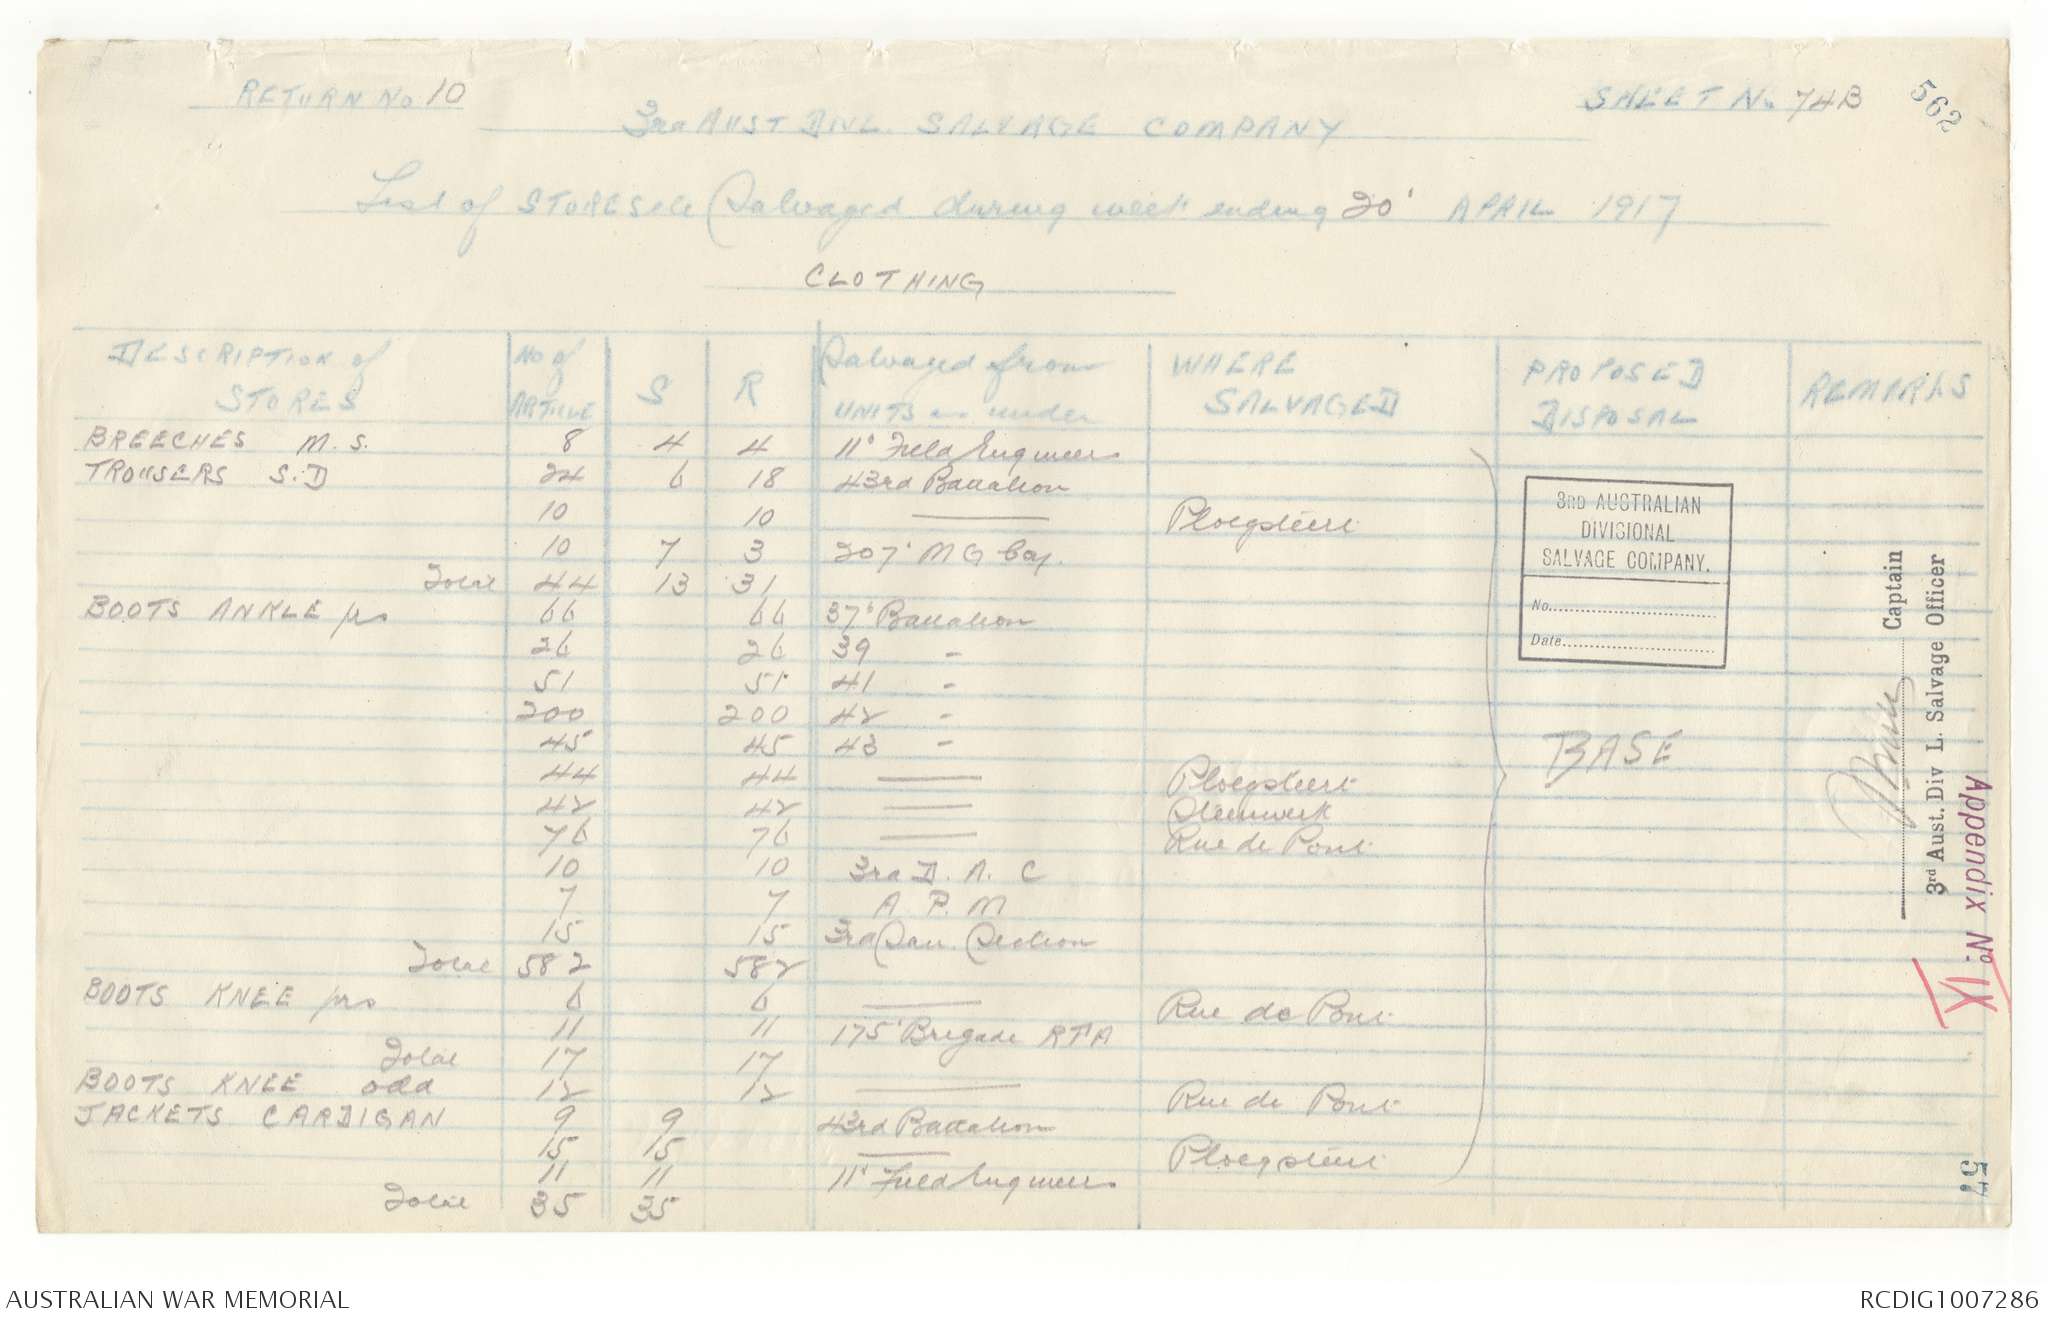 RETURN No 10
SHEET No 74B
562
3rd AUST DIVL. SALVAGE COMPANY
List of STORES etc Salvaged during week ending 20' APRIL 1917
CLOTHING
DESCRIPTION of STORES No of ARTICLE S R Salvaged from UNITS as under WHERE SALVAGED PROPOSED DISPOSAL REMARKS
BREECHES M.S. 8 4 4 11' Field Engineers
TROUSERS S.D 24 6 18 43rd Battalion
10 10 —— Ploegsteert
10 7 3 207' M G Coy.
Total 44 13 31
BOOTS ANKLE prs 66 66 37' Battalion
26 26 39 -
51 51 41 -
200 200 42 -
45 45 43 -
44 44 —— Ploegsteert
42 42 —— Steenwerk
76 76 —— Rue de Pont
10 10 3rd D. A. C
7 7 A. P. M
15 15 3rd San. Section
Total 582 582
BOOTS KNEE prs 6 6 —— Rue de Pont
11 11 175' Brigade RFA
Total 17 17
BOOTS KNEE odd 12 12 —— Rue de Pont
JACKETS CARDIGAN 9 9 43rd Battalion
15 15 —— Ploegsteert
11 11 11' Field Engineers
Total 35 35
BASE
3RD AUSTRALIAN
DIVISIONAL
SALVAGE COMPANY.
No.
Date
Captain
3rd Aust. Div L. Salvage Officer
Appendix No.
IX
57
AUSTRALIAN WAR MEMORIAL
RCDIG1007286